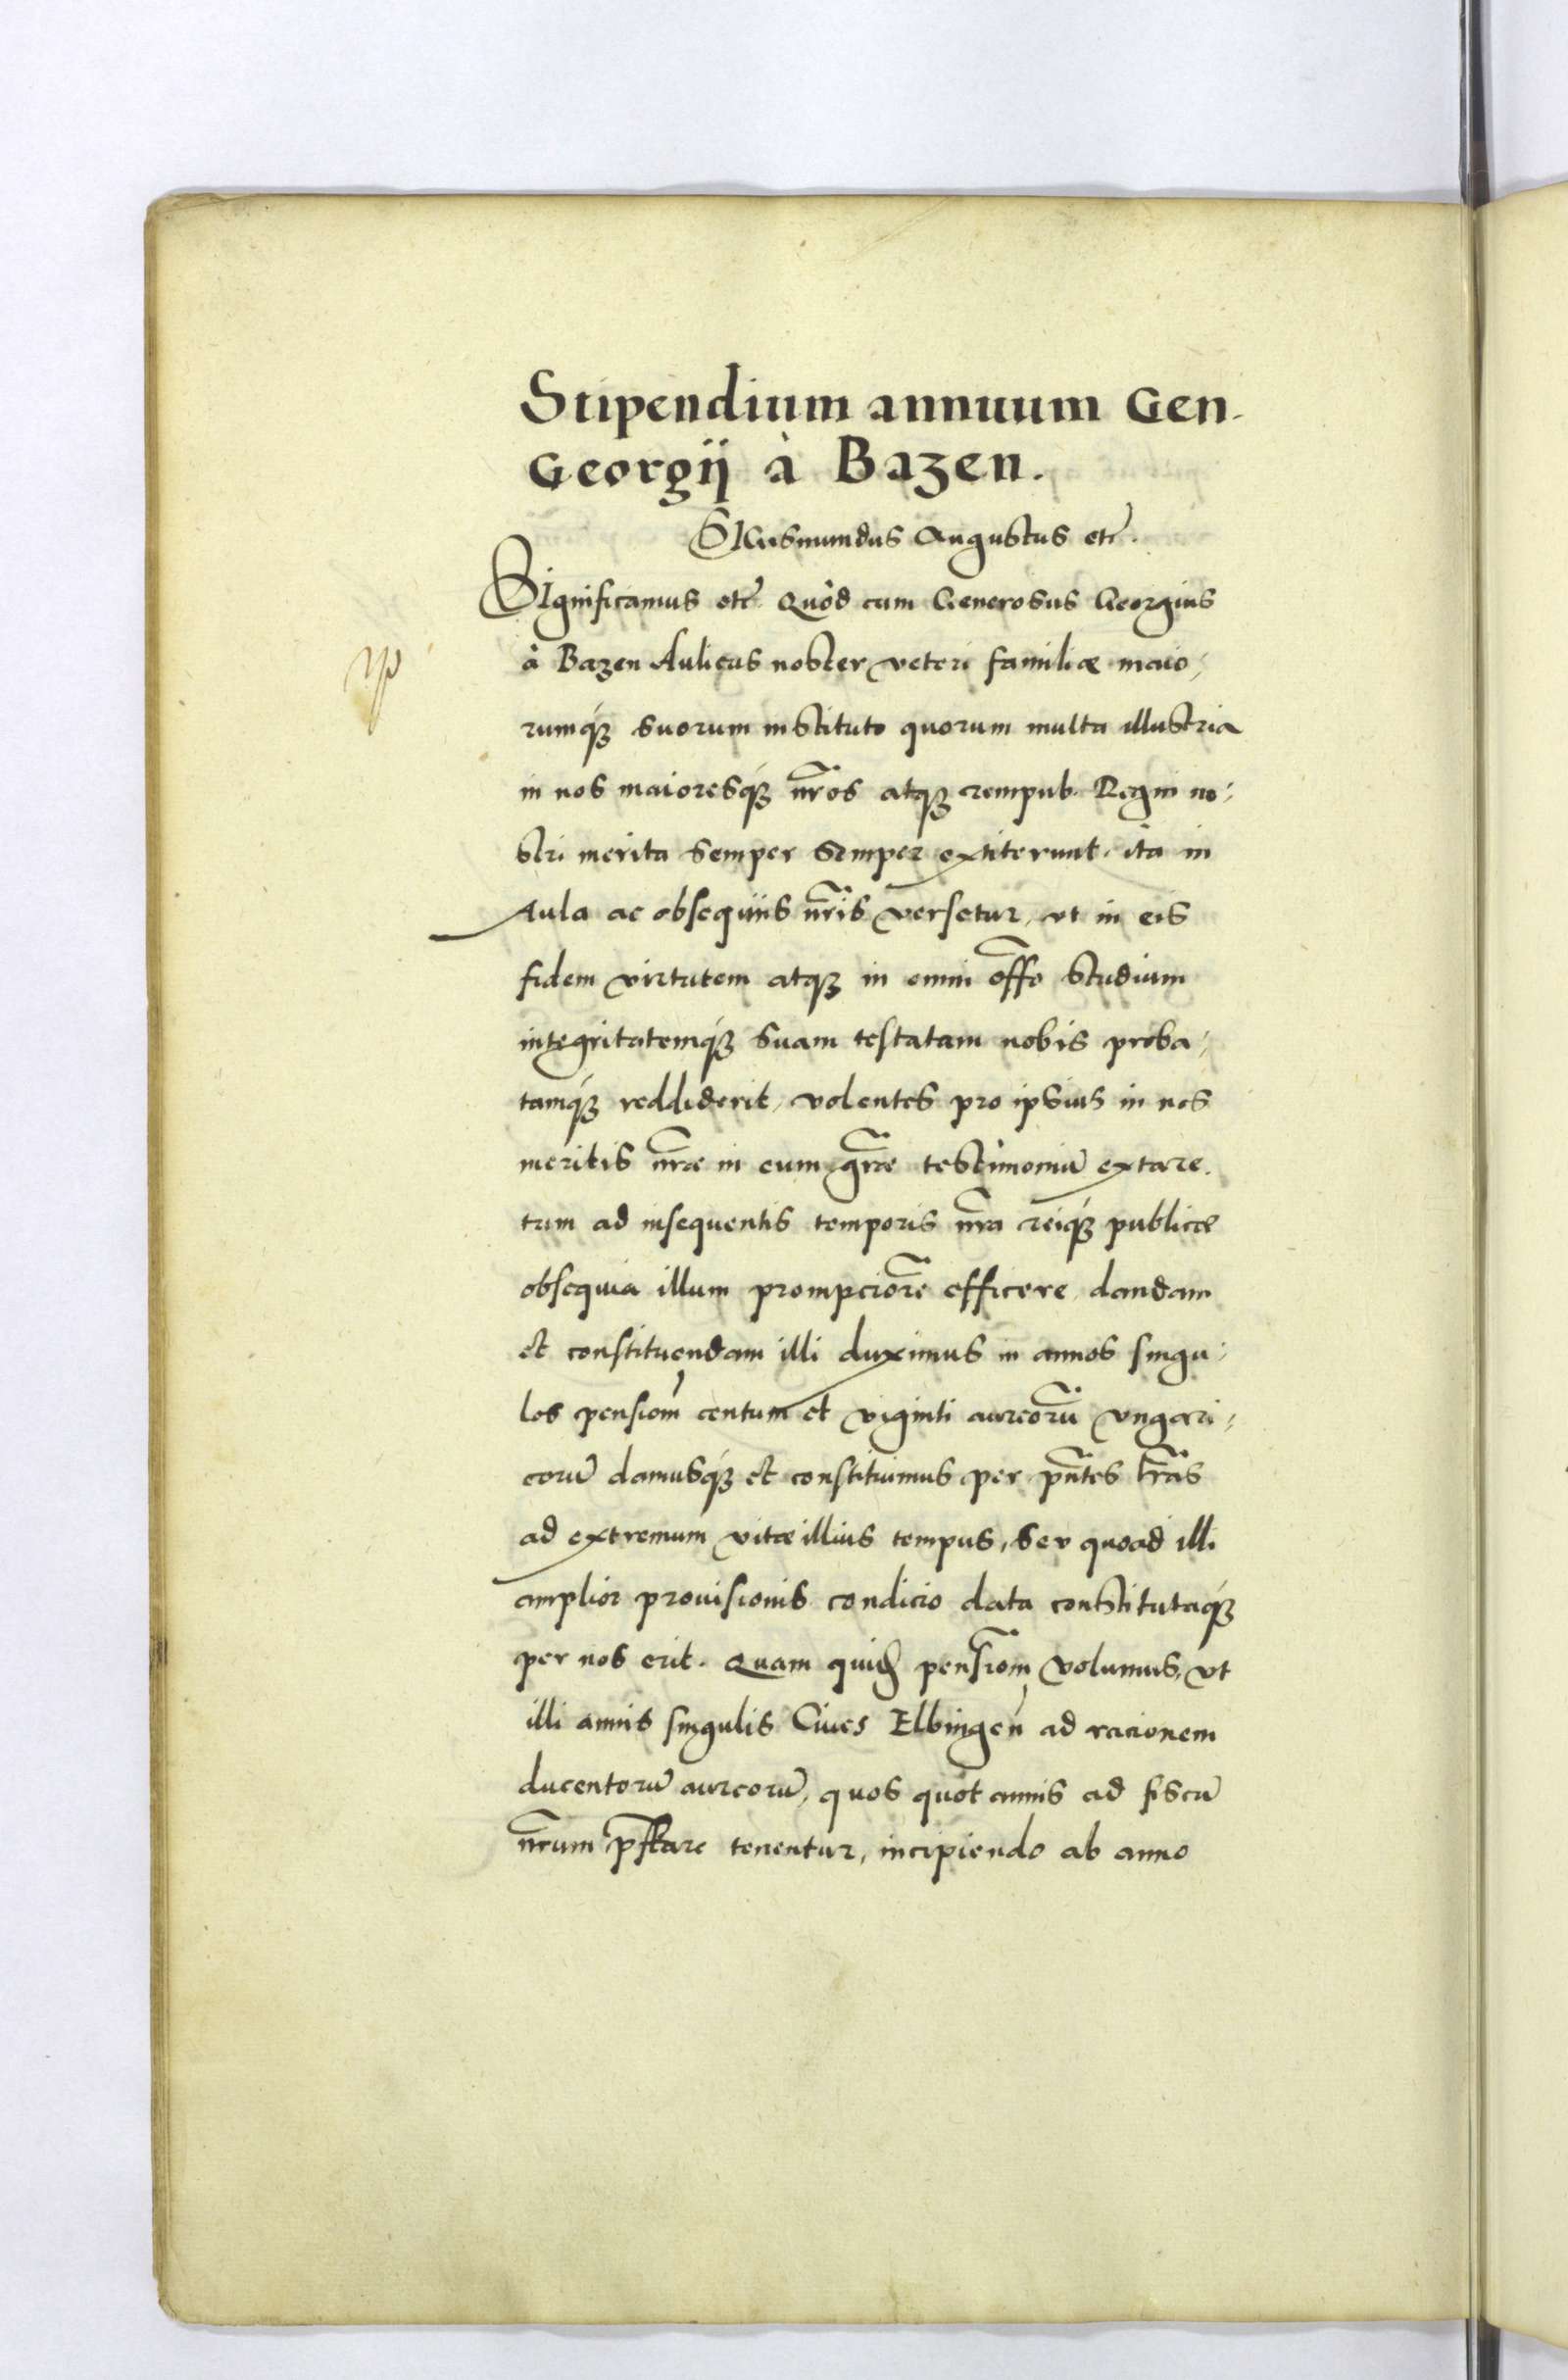 Stipendium annuum Gen.
Georgij à Bazen.
SIGismundus Augustus etc̃.
SIgnificamus etc̃. Quòd cum Generosus Georgius
à Bazen Aulicus noster veteri familiæ maio,
rumq́ꝫ suorum instituto quorum multa illustria
in nos maioresq́ꝫ nr̃os atqꝫ rempub. Regni no,
stri merita semper semper extiterunt. ita in
Aula ac obsequijs nr̃is versetur, vt in eis
fidem virtutem atqꝫ in omni off̃o studium
integritatemq́ꝫ suam testatam nobis proba,
tamq́ꝫ reddiderit, volentes pro ipsius in nos
meritis nr̃æ in eum gr̃æ testimoniũ extare.
tum ad insequentis temporis nr̃a reiq́ꝫ publicæ
obsequia illum prompciorẽ efficere, dandam
et constituendam illi duximus in annos singu,
los pensiom̃ centum et viginti aureorũ vngari,
corũ damusq́ꝫ et constituimus per pñtes lr̃as
ad extremum vitæ illius tempus, seu quoad illi
amplior prouisionis condicio data constitutaq́ꝫ
per nos erit. Quam quid̃ pensiom̃ volumus, vt
illi annis singulis Ciues Elbingeñ ad racionem
ducentorũ aureorũ, quos quot annis ad fiscũ
nr̃um p̃stare tenentur, incipiendo ab anno